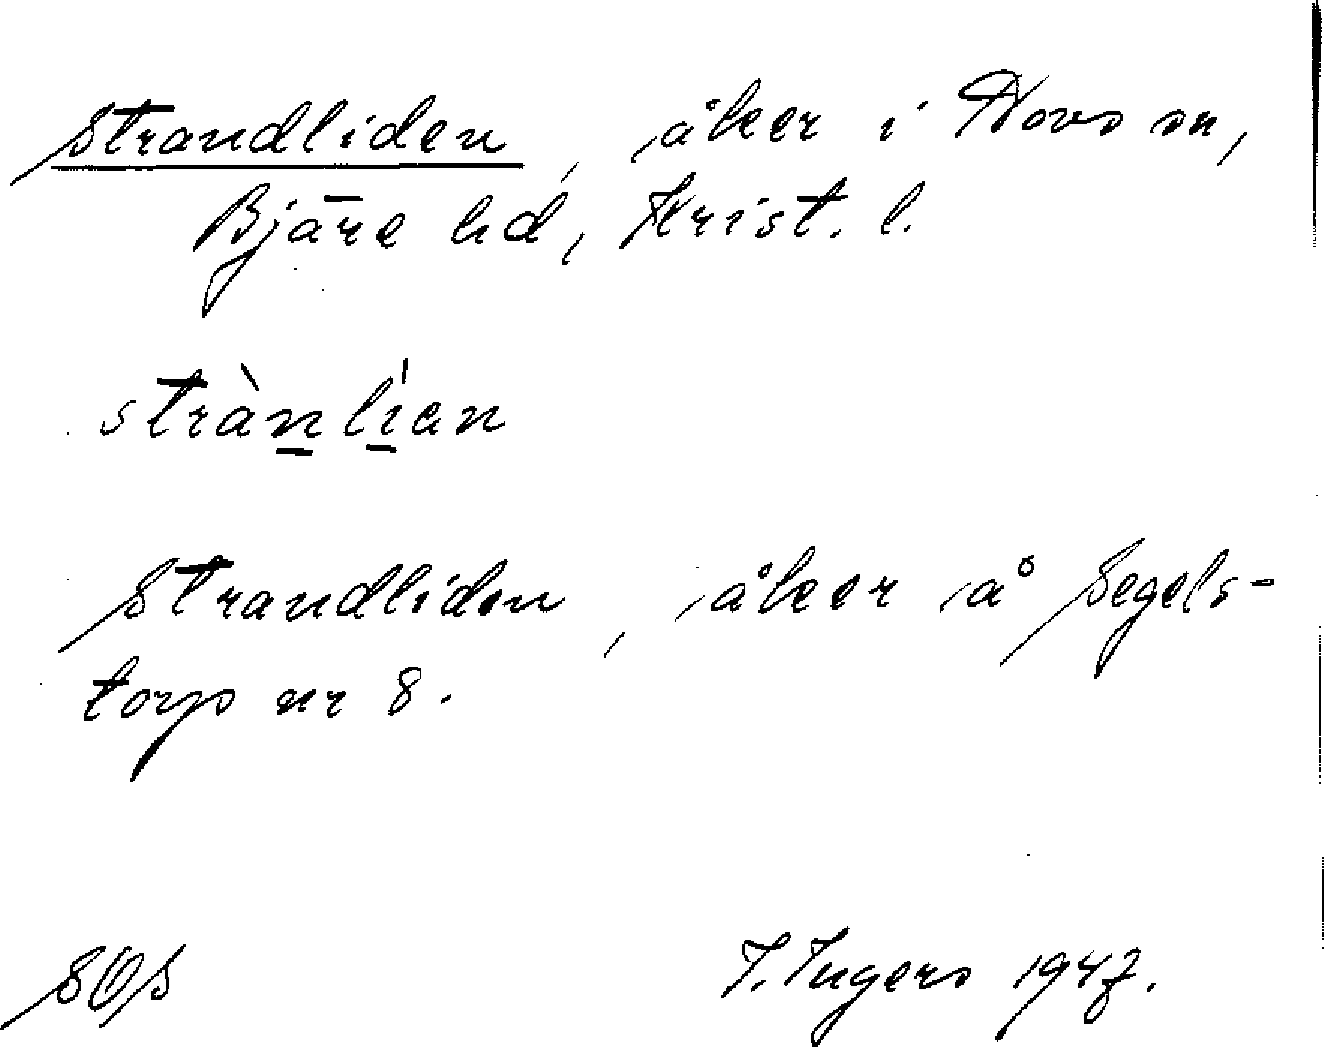 Strandliden, åker i Hovs sn,
Bjäre hd, Krist. l.
stràn lìan
Strandliden, åker å Segels-
torp nr 8.
SOS
I. Ingers 1947.